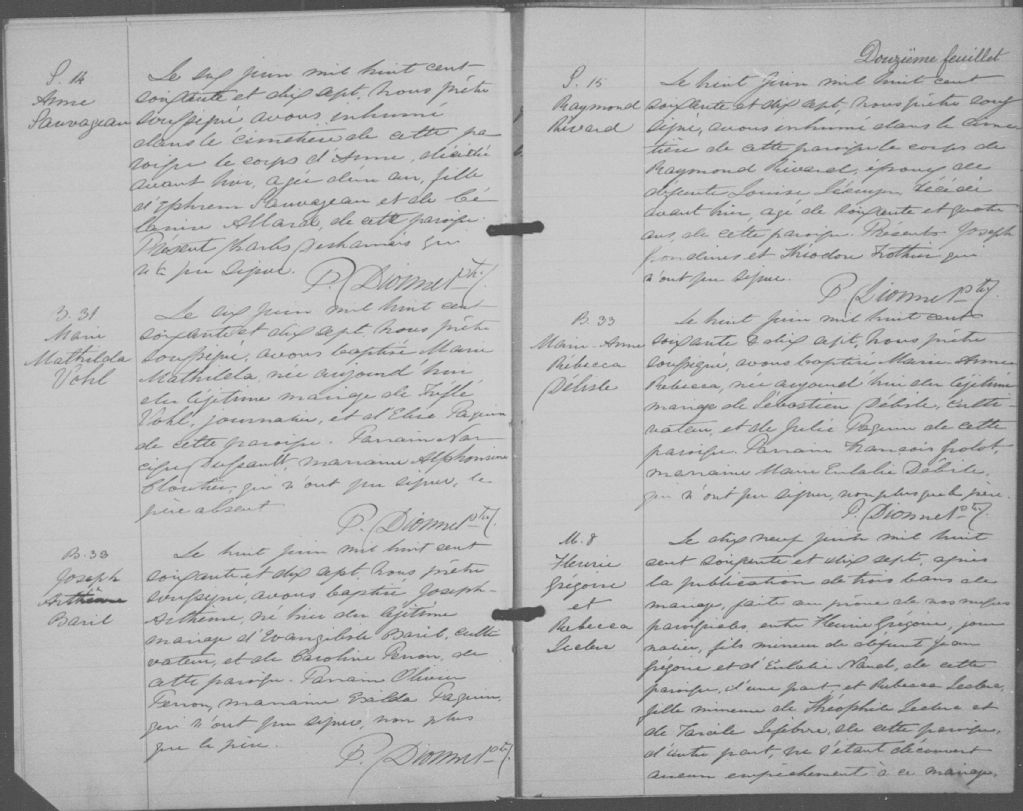 S. 14
Anne
Sauvageau
Le six juin mil huit cent
soixante et dix sept, nous prêtre
soussigné avons inhumé
dans le cimetière de cette pa
roisse le corps d'Anne, décédée
avant hier, agée d'un an, fille
d'Ephrem Sauvageau et de Cé
lanire Allard, de cette paroisse.
Présent Charles Deshamais qui
n'a pu signer.
P. Dionne Ptre
B. 31
Marie
Mathilda
Vohl
Le six juin mil huit cent
soixante et dix sept, nous prêtre
soussigné, avons baptisé Marie
Mathilda, née aujourd'hui
du légitime mariage de Zéphile
Vohl, journalier, et d'Elise Paquin
de cette paroisse. Parrain Nar
cisse Dussault, marraine Alphonsine
Cloutier, qui n'ont pu signer, le
père absent
P. Dionne Ptre
B. 33
Joseph
Arthème
Baril
Le huit juin mil huit cent
soixante et dix sept, nous prêtre
soussigné, avons baptisé Joseph-
Arthème, né hier du légitime
mariage d'Evangéliste Baril, culti
vateur, et de Caroline Perron, de
cette paroisse. Parrain Olivier
Perron, marraine Exilda Paquin,
qui n'ont pu signer, non plus
que le père.
P. Dionne Ptre
Douzième feuillet
S. 15
Raymond
Rivard
Le huit juin mil huit cent
soixante et dix sept, nous prêtre sous
signé, avons inhumé dans le cime
tière de cette paroisse le corps de
Raymond Rivard, époux de
défunte Louise décédé
avant hier, agé de soixante et quatre
ans, de cette paroisse. Présents Joseph
Gondines et Théodore Trottier qui
n'ont pu signer.
P. Dionne Ptre
B. 33
Marie-Anne
Rebecca
Délisle
Le huit juin mil huit cent
soixante & dix sept, nous prêtre
soussigné, avons baptisé Marie Anne
Rebecca, née aujourd'hui du légitime
mariage de Sébastien Délisle, culti-
vateur, et de Julie Paquin de cette
paroisse. Parrain François
marraine Marie Eulalie Délisle,
qui n'ont pu signer, non plus que le père.
P. Dionne Ptre
M. 8
Fleurie
Grégoire
et
Rebecca
Leclerc
Le dix neuf juin mil huit
cent soixante et dix sept, après
la publication de trois bans de
mariage, faite au prône de nos messes
paroissiales, entre Fleurie Grégoire, jour
nalier, fils mineur de défunt Jean
Grégoire et d'Eulalie Naud, de cette
paroisse, d'une part, et Rebecca Leclerc,
fille mineure de Théophile Leclerc et
de Tarsile Lefebvre, de cette paroisse,
d'autre part, ne s'étant découvert
aucun empêchement à ce mariage,